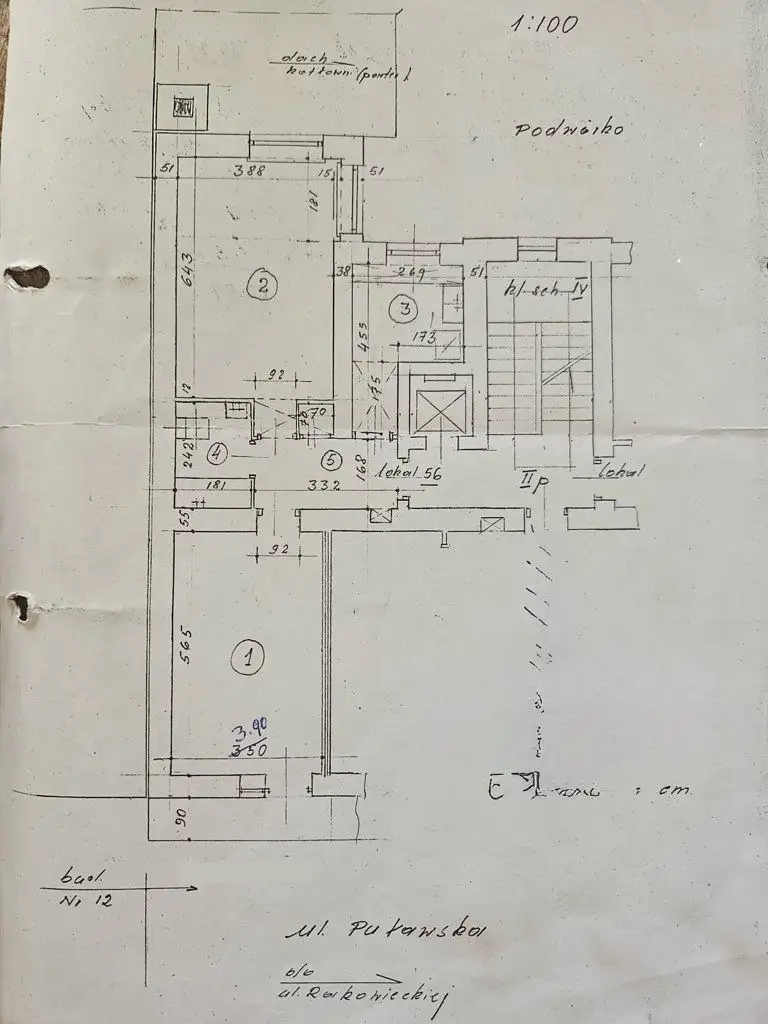 1:100
dach
kotłowni (parter)
Podwórko
51
388
15
51
181
643
2
38
269
51
kl. sch. IV
3
455
173
92
175
12
70
70
242
4
5
168
lokal 56
II p
lokal
181
332
55
92
565
1
3.90
350
90
cm
bud.
Nr 12
ul. Puławska
ul. Rakowieckiej